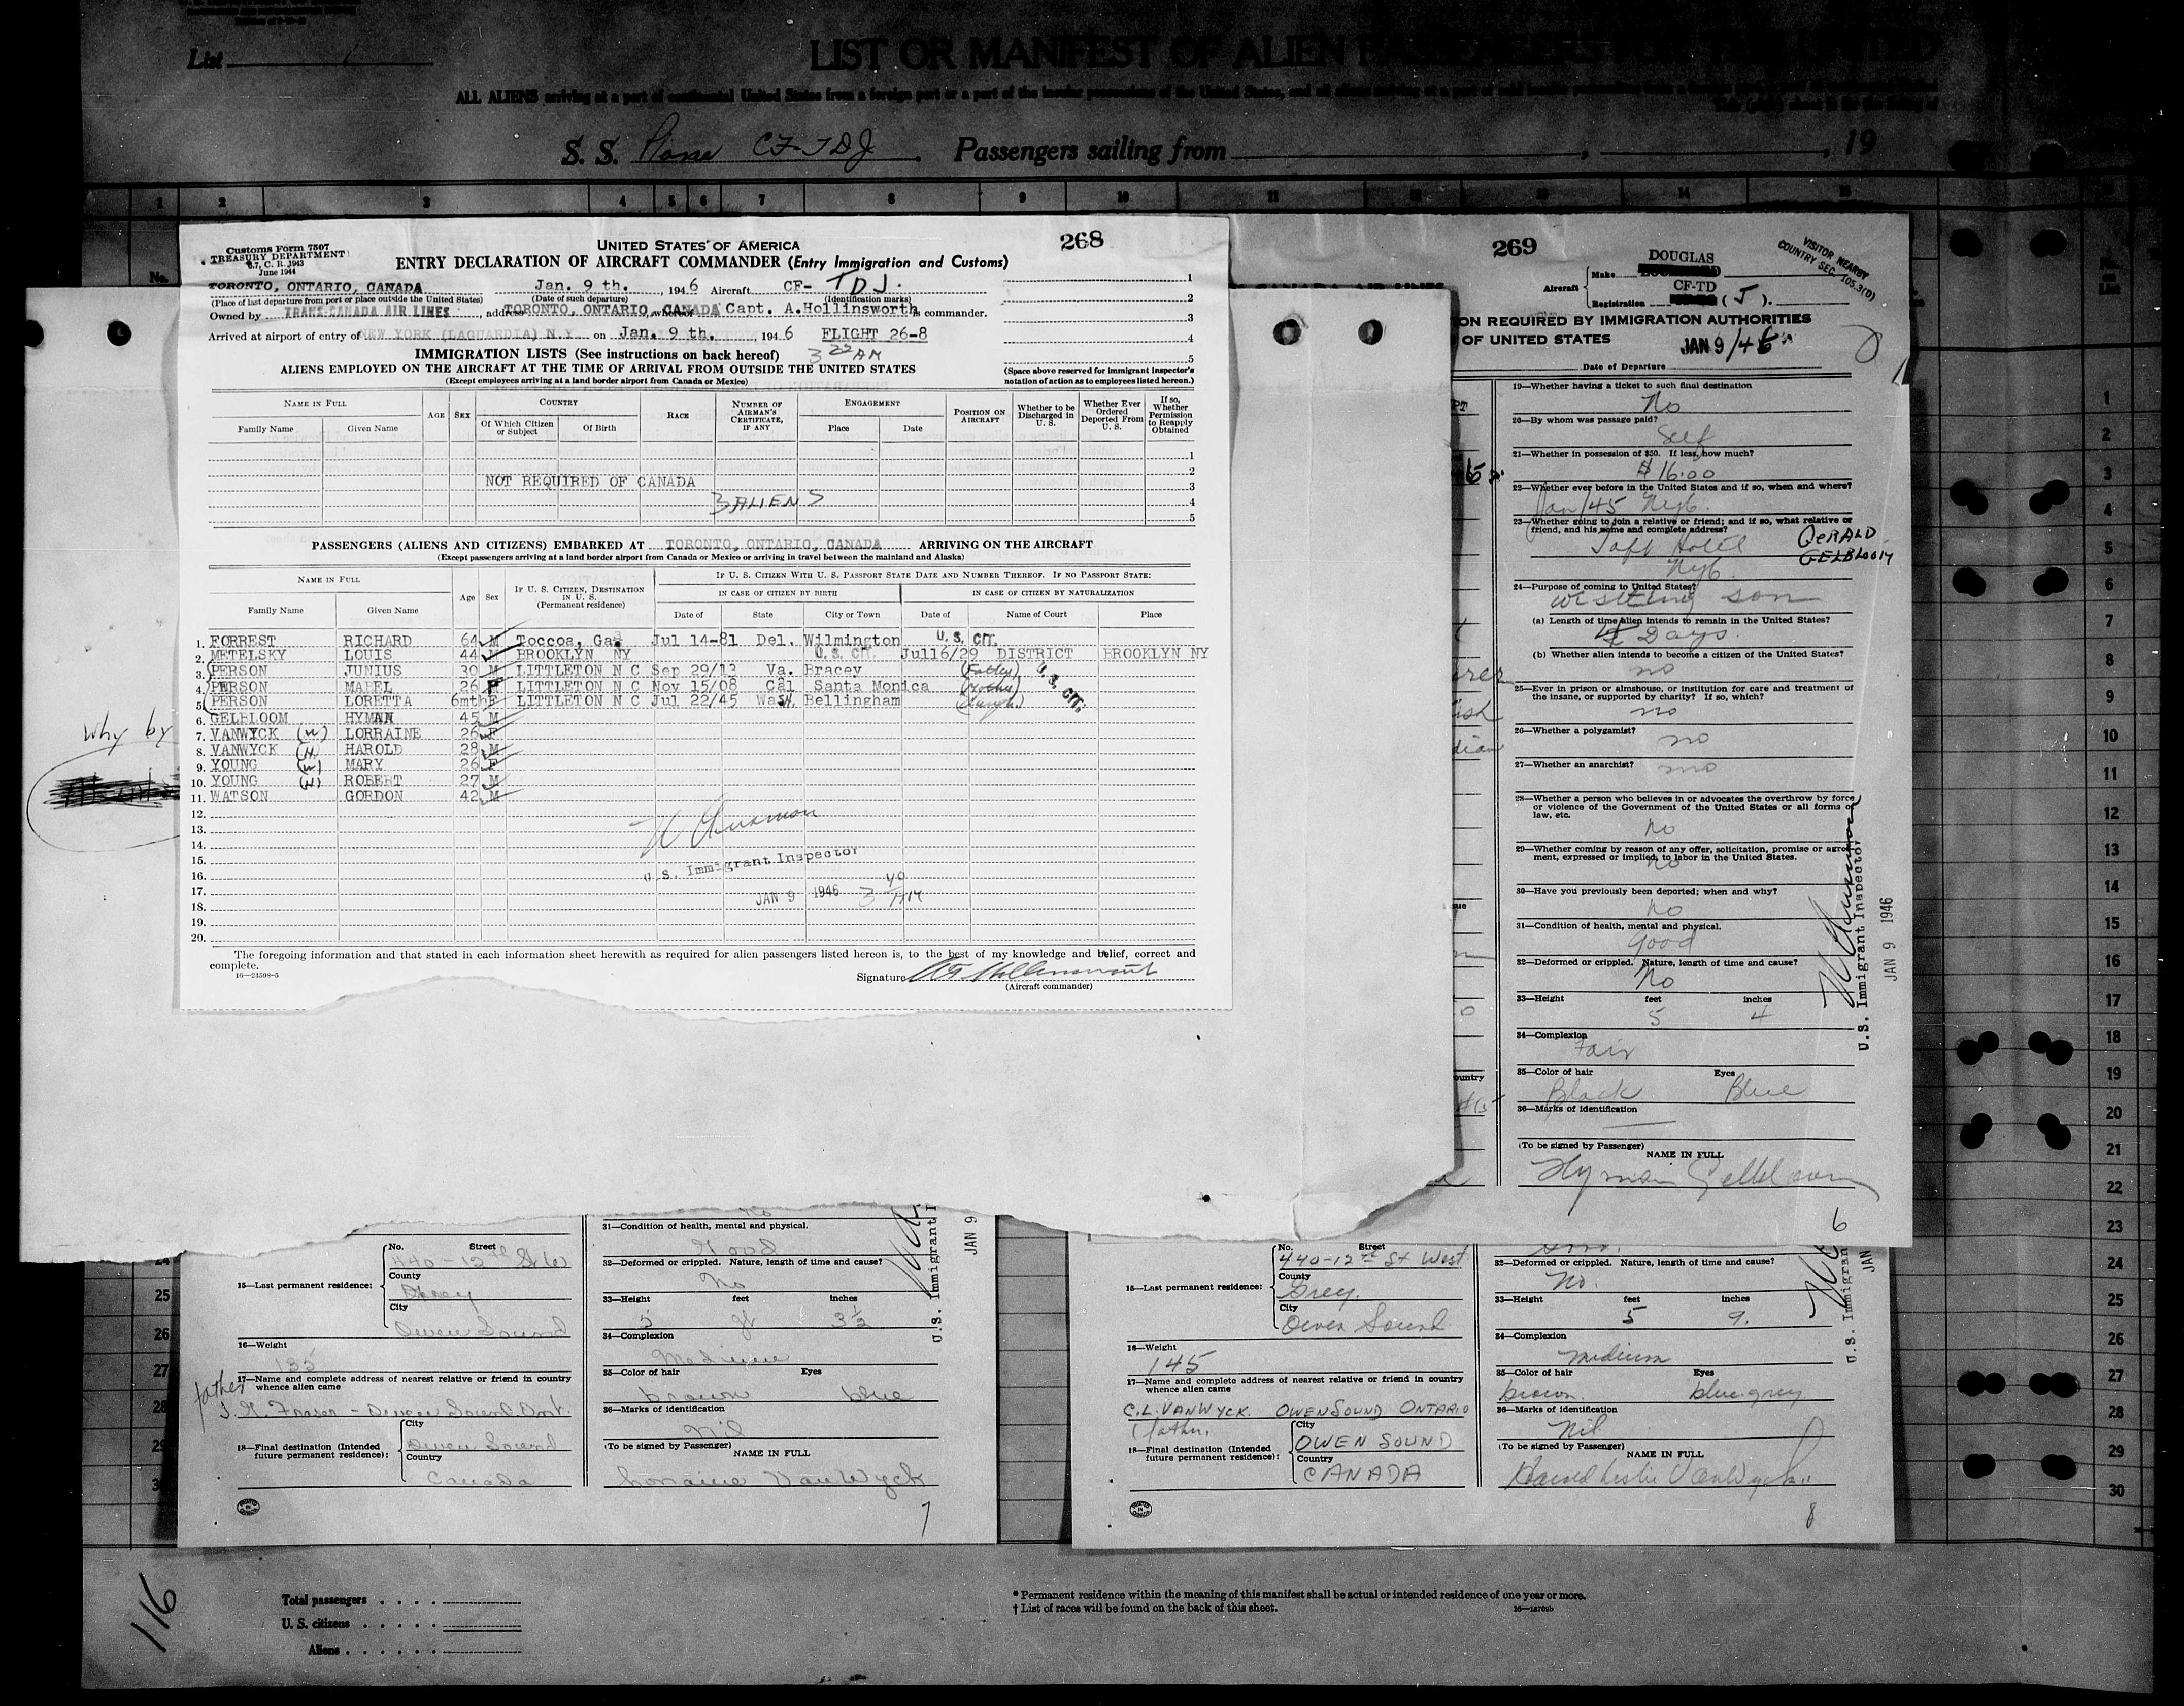 List 1
LIST OR MANIFEST OF ALIEN PASSENGERS FOR THE UNITED
ALL ALIENS arriving at a port of continental United States from a foreign port or a port of the insular possessions of the United States, and all aliens
S. S. Plane CF-TDJ. Passengers sailing from , , 19
1 2 3 4 5 6 7 8 9 10 11 12 13 14 15
No.
Customs Form 7507
TREASURY DEPARTMENT
C. R. 1943
June 1944
UNITED STATES OF AMERICA
268
ENTRY DECLARATION OF AIRCRAFT COMMANDER (Entry Immigration and Customs)
TORONTO, ONTARIO, CANADA Jan. 9 th. , 1946 Aircraft CF- TDJ.
(Place of last departure from port or place outside the United States) (Date of such departure) (Identification marks)
Owned by TRANS-CANADA AIR LINES , address TORONTO, ONTARIO, CANADA whereof Capt. A.Hollinsworth is commander.
Arrived at airport of entry of NEW YORK (LAGUARDIA) N.Y. on Jan. 9 th. , 1946 FLIGHT 26-8
3 22 AM
1
2
3
4
5
(Space above reserved for immigrant inspector's
notation of action as to employees listed hereon.)
IMMIGRATION LISTS (See instructions on back hereof)
ALIENS EMPLOYED ON THE AIRCRAFT AT THE TIME OF ARRIVAL FROM OUTSIDE THE UNITED STATES
(Except employees arriving at a land border airport from Canada or Mexico)
NAME IN FULL
Family Name Given Name
AGE SEX
COUNTRY
Of Which Citizen or Subject Of Birth
RACE
NUMBER OF AIRMAN'S CERTIFICATE, IF ANY
ENGAGEMENT
Place Date
POSITION ON AIRCRAFT
Whether to be Discharged in U. S.
Whether Ever Ordered Deported From U. S.
If so, Whether Permission to Reapply Obtained
1
2
NOT REQUIRED OF CANADA
3
3 ALIENS 4
5
PASSENGERS (ALIENS AND CITIZENS) EMBARKED AT TORONTO, ONTARIO, CANADA ARRIVING ON THE AIRCRAFT
(Except passengers arriving at a land border airport from Canada or Mexico or arriving in travel between the mainland and Alaska)
NAME IN FULL
Family Name Given Name
Age Sex
IF U. S. CITIZEN, DESTINATION IN U. S. (Permanent residence)
IF U. S. CITIZEN WITH U. S. PASSPORT STATE DATE AND NUMBER THEREOF. IF NO PASSPORT STATE:
IN CASE OF CITIZEN BY BIRTH IN CASE OF CITIZEN BY NATURALIZATION
Date of State City or Town Date of Name of Court Place
1. FORREST RICHARD 64 M Toccoa, Ga. Jul 14-81 Del. Wilmington U. S. CIT.
2. METELSKY LOUIS 44 M BROOKLYN NY U. S. CIT. Jul16/29 DISTRICT BROOKLYN NY
3. PERSON JUNIUS 30 M LITTLETON N C Sep 29/13 Va. Bracey (Father) U. S. CIT.
4. PERSON MABEL 26 F LITTLETON N C Nov 15/08 Cal Santa Monica (Mother)
5. PERSON LORETTA 6mth F LITTLETON N C Jul 22/45 Wash. Bellingham (Daugh.)
6. GELBLOOM HYMAN 45 M
7. VANWYCK (W) LORRAINE 26 F
8. VANWYCK (H) HAROLD 28 M
9. YOUNG (W) MARY 26 F
10. YOUNG (H) ROBERT 27 M
11. WATSON GORDON 42 M
12.
13.
14.
15.
16.
17.
18.
19.
20.
U. S. Immigrant Inspector
JAN 9 1946 3 40 AM
The foregoing information and that stated in each information sheet herewith as required for alien passengers listed hereon is, to the best of my knowledge and belief, correct and
complete.
16-24598-5
Signature
(Aircraft commander)
Why by
269
DOUGLAS
VISITOR NEARBY
COUNTRY SEC. 105.3(0)
Aircraft Make
CF-TD
Registration (J).
ON REQUIRED BY IMMIGRATION AUTHORITIES
OF UNITED STATES
JAN 9/46
Date of Departure
19—Whether having a ticket to such final destination
No
20—By whom was passage paid?
Self
21—Whether in possession of $50. If less, how much?
$16.00
22—Whether ever before in the United States and if so, when and where?
Jan/45 Nyc.
23—Whether going to join a relative or friend; and if so, what relative or
friend, and his name and complete address?
Taft Hotel GERALD GELBLOOM
Nyc.
24—Purpose of coming to United States?
visiting son
(a) Length of time alien intends to remain in the United States?
Days.
(b) Whether alien intends to become a citizen of the United States?
no
25—Ever in prison or almshouse, or institution for care and treatment of
the insane, or supported by charity? If so, which?
no
26—Whether a polygamist?
no
27—Whether an anarchist?
no
28—Whether a person who believes in or advocates the overthrow by force
or violence of the Government of the United States or all forms of
law, etc.
no
29—Whether coming by reason of any offer, solicitation, promise or agree-
ment, expressed or implied, to labor in the United States.
no
30—Have you previously been deported; when and why?
no
31—Condition of health, mental and physical.
good
32—Deformed or crippled. Nature, length of time and cause?
No
33—Height feet inches
5 4
34—Complexion
Fair
35—Color of hair Eyes
Black Blue
36—Marks of identification
(To be signed by Passenger)
NAME IN FULL
Hyman Gelbloom
6
U.S. Immigrant Inspector
JAN 9 1946
1
2
3
4
5
6
7
8
9
10
11
12
13
14
15
16
17
18
19
20
21
22
23
24
25
26
27
28
29
30
No. Street
440-12th St W
15—Last permanent residence:
County
Grey
City
Owen Sound
16—Weight
135
17—Name and complete address of nearest relative or friend in country
whence alien came
father
Fraser - Owen Sound Ont.
18—Final destination (Intended
future permanent residence):
City
Owen Sound
Country
Canada
31—Condition of health, mental and physical.
Good
32—Deformed or crippled. Nature, length of time and cause?
No
33—Height feet inches
5 ft 3½
34—Complexion
Medium
35—Color of hair Eyes
brown blue
36—Marks of identification
Nil
(To be signed by Passenger)
NAME IN FULL
Lorraine VanWyck
7
U.S. Immigrant I
JAN 9
No. Street
440-12th St West
15—Last permanent residence:
County
Grey.
City
Owen Sound
16—Weight
145
17—Name and complete address of nearest relative or friend in country
whence alien came
C.L. VANWYCK. OWEN SOUND ONTARIO
(father.
18—Final destination (Intended
future permanent residence):
City
OWEN SOUND
Country
CANADA
32—Deformed or crippled. Nature, length of time and cause?
No.
33—Height feet inches
5 9.
34—Complexion
medium
35—Color of hair Eyes
brown. blue-grey
36—Marks of identification
Nil
(To be signed by Passenger)
NAME IN FULL
Harold Leslie VanWyck
8
U.S. Immigran
JAN
24
25
26
27
28
29
116
Total passengers
U. S. citizens
Aliens
* Permanent residence within the meaning of this manifest shall be actual or intended residence of one year or more.
† List of races will be found on the back of this sheet.
16—18709b